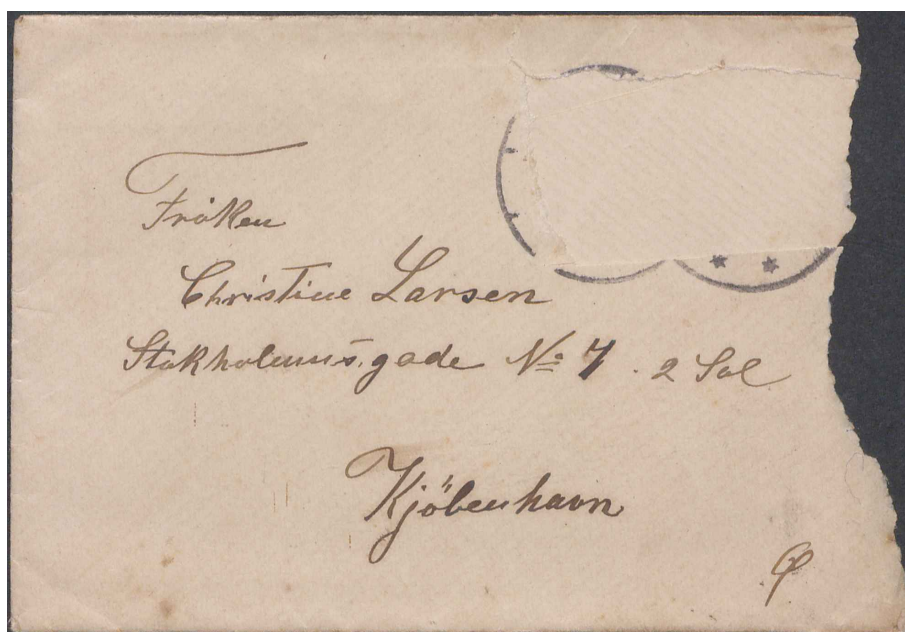 Fröken
Christine Larsen
Stokholmmsgade No 7. 2 Sal
Kjöbenhavn
Ø